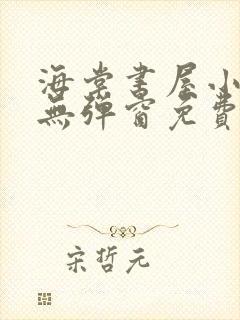 海棠書屋小
無彈窗免費
宋哲元